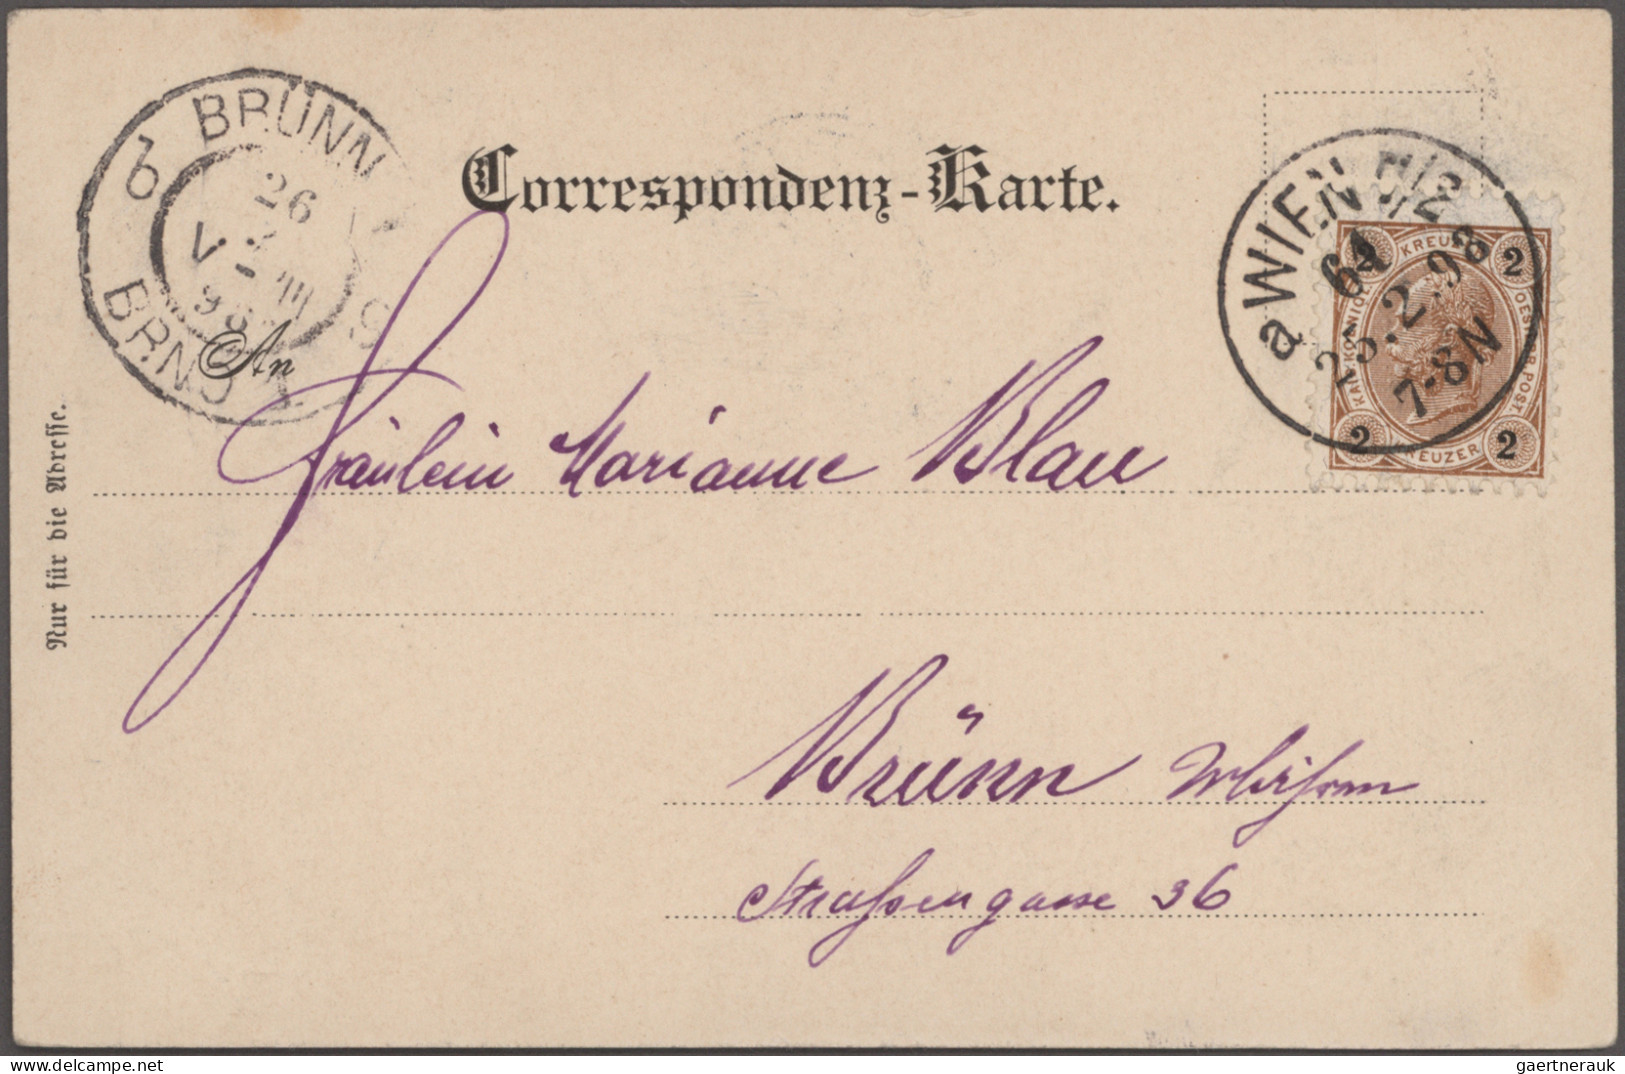 BRÜNN
6
26
V
98
BRNO
Correspondenz-Karte.
a WIEN
64
25.2.98
7-8N
KREUZER
2 2
2 2
KREUZER
OESTERR. POST.
An
Fräulein Marianne Blau
Brünn Mähren
Strassengasse 36
Nur für die Adresse.
gaertnerauk